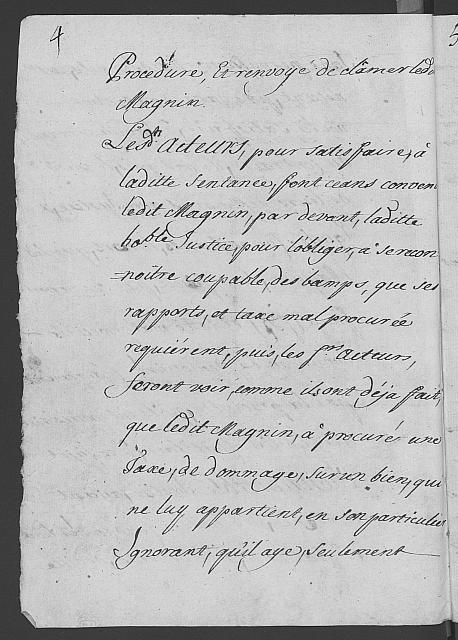 4
5
Procedure, Et renvoye de clamer led.
Magnin.
Lesd.ts Acteurs, pour satisfaire, à
laditte sentance, font ceans conven
ledit Magnin, par devant, laditte
ho.ble Justice, pour l'obliger, a se recon
=noitre coupable, des bamps, que ses
rapports, et taxe mal procurée
requiérent, puis, les s.rs Acteurs,
feront voir, comme ils ont déja fait,
que ledit Magnin, a procuré une
Taxe, de dommage, sur un bien, qui
ne luy appartient, en son particulier
Ignorant, qu'il aye, seulement